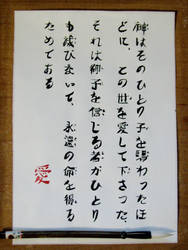 神はそのひとり子を賜わったほ
どに、この世を愛して下さった。
それは御子を信じる者がひとり
も滅びないで、永遠の命を得る
ためである
愛